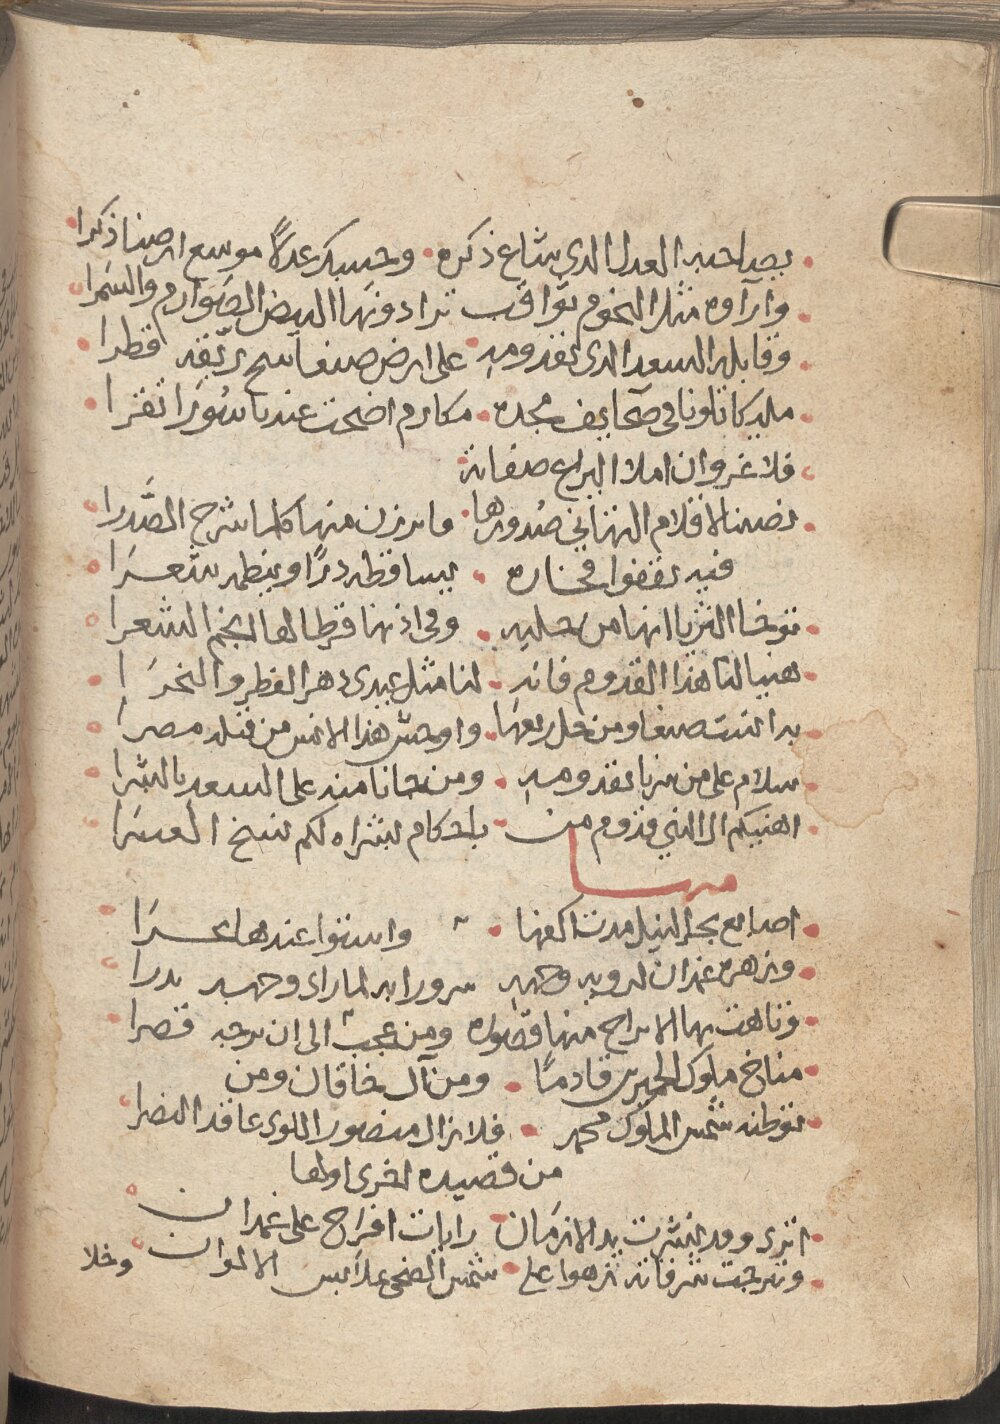 بصاحب العدل الذي شاع ذكره وحسبك عدلاً موسع ارضنا ذكرا
وآراوه مثل النجوم ثواقب تراد ونها البيض الصوارم والسمرا
وقابله السعد الذي بقدومه على ارض صنعا سح ريقه قطرا
مليك تلونا في صحايف مجده مكارم اضحت عندنا سُورًا تقرا
فلا غرو ان املا اليراع صفاته
نصبنا لاقلام التهاني صُدورها وابرزن منها كلما شرح الصَّدرا
فيه يقفوا فخاره بيسا قطه درًا وينظمه شعرا
توخا الثريا انها من حليه وفي اذنها قرطا لها النجم الشعرا
هنيا لنا هذا القدوم فانه لنا مثل عيدي دهر الفطر والنحرَا
بدا انست صنعا ومن حل ربعها واوحش هذا الانس من قبله مصرا
سلام على من سرنا بقدومه ومن جانا منه على السعد بالبشرا
اهنيكم ال النبي قدوم من باحكام بشراه لكم نسخ العسرا
منها
اصابع بحر النيل مدت اكفها واستوا عندها عسرَا
وزهره غمدان لرويه وجهه سرورا به لما راى وجهه بدرا
وتاهت بها الابراج منها قصوره ومن عجب الى ان نوجه قصرا
مناخ ملوك الحميرين قادمًا ومن آل خاقان ومن
توطنه شمس الملوك محمد فلا زال منصور اللوى عاقد النصرا
من قصيده اخرى اولها
اترى وقد نشرت يد الازمان رايات افراح على غمدان
وتبرجت شرفاته تزهوا على شمس الضحى بملابس الالوان
وخلا